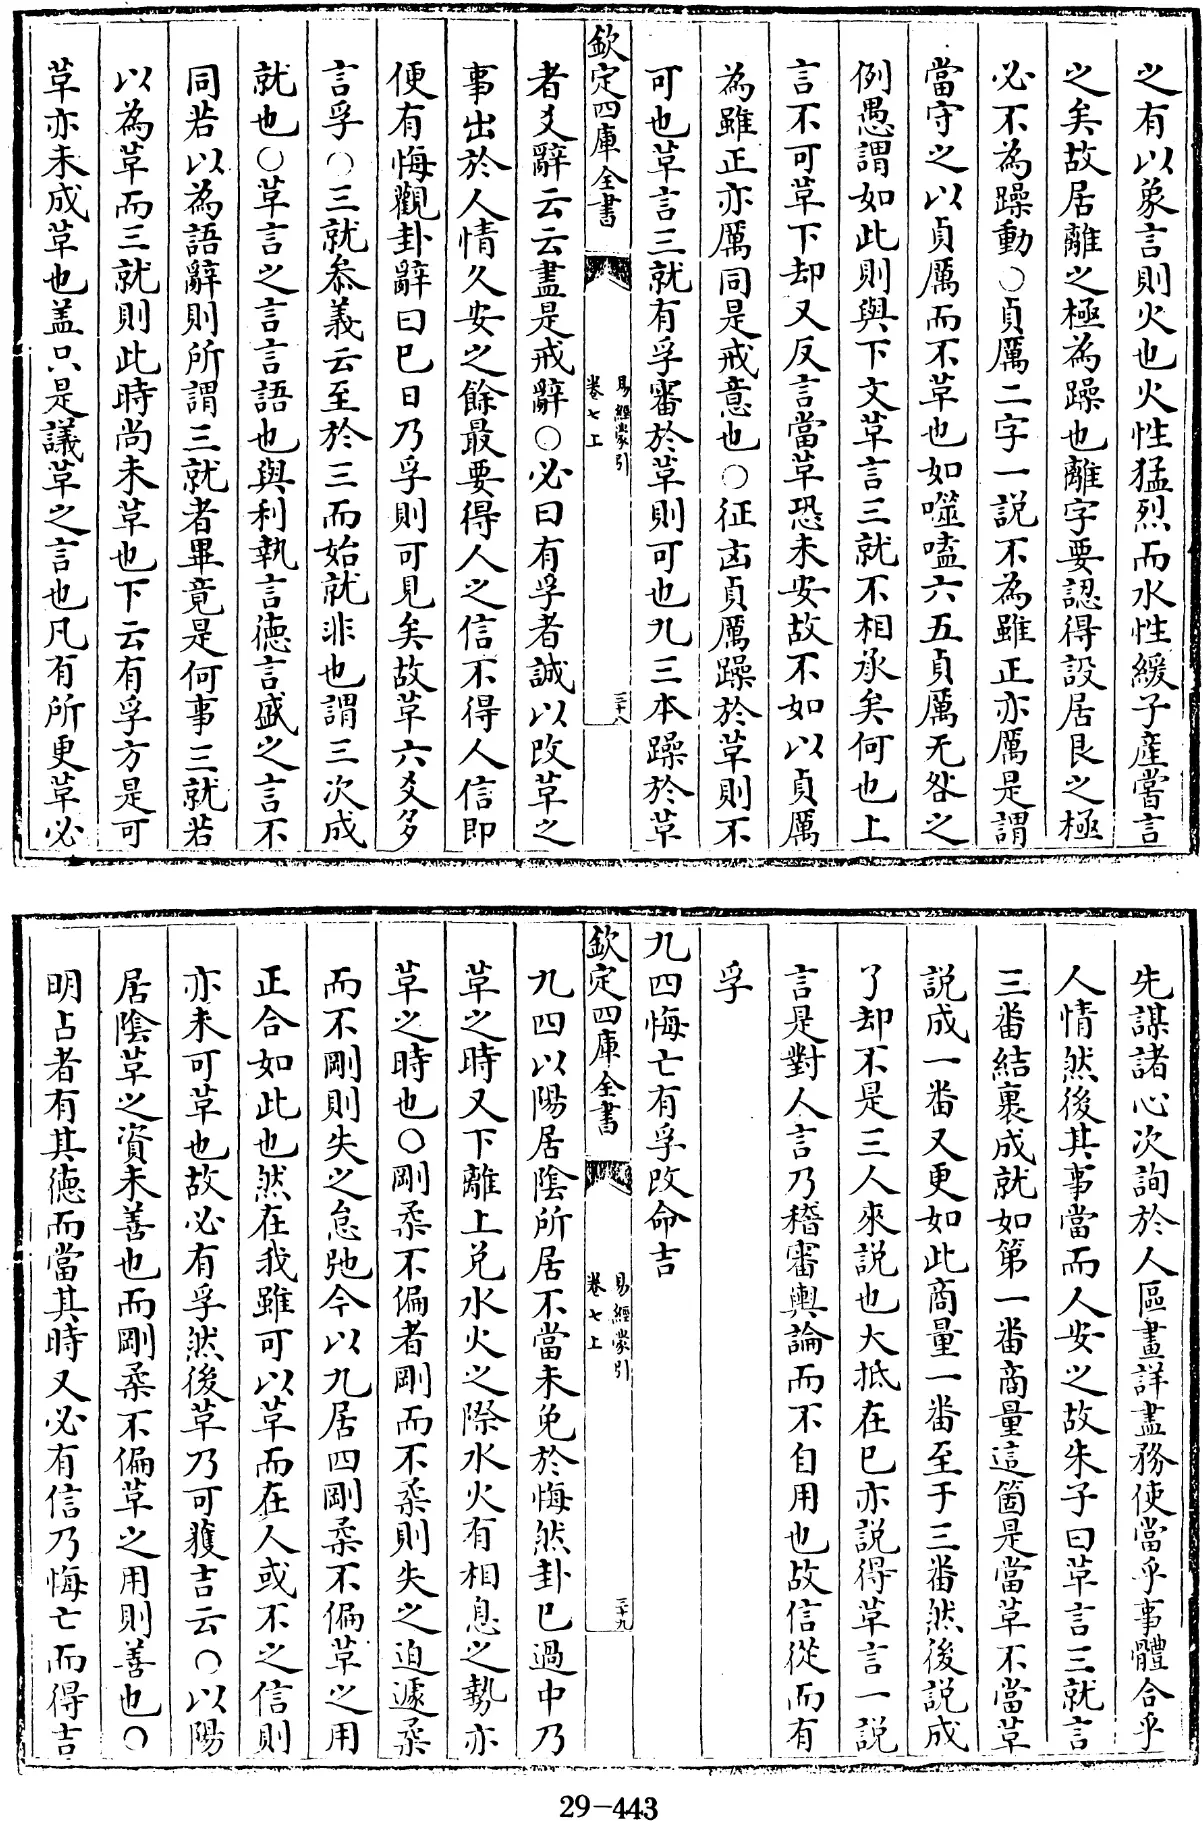 之有以象言則火也火性猛烈而水性緩子產嘗言
之矣故居離之極為躁也離字要認得設居艮之極
必不為躁動○貞厲二字一説不為雖正亦厲是謂
當守之以貞厲而不革也如噬嗑六五貞厲无咎之
例愚謂如此則與下文革言三就不相承矣何也上
言不可革下却又反言當革恐未安故不如以貞厲
為雖正亦厲同是戒意也○征凶貞厲躁於革則不
可也革言三就有孚審於革則可也九三本躁於革
欽定四庫全書
易經蒙引
卷七上
三十八
者爻辭云云盡是戒辭○必曰有孚者誠以改革之
事出於人情久安之餘最要得人之信不得人信即
便有悔觀卦辭曰巳日乃孚則可見矣故革六爻多
言孚○三就叅義云至於三而始就非也謂三次成
就也○革言之言言語也與利執言德言盛之言不
同若以為語辭則所謂三就者畢竟是何事三就若
以為革而三就則此時尚未革也下云有孚方是可
革亦未成革也盖只是議革之言也凡有所更革必
先謀諸心次詢於人區畫詳盡務使當乎事體合乎
人情然後其事當而人安之故朱子曰革言三就言
三番結裹成就如第一番商量這箇是當革不當革
説成一番又更如此商量一番至于三番然後説成
了却不是三人來説也大抵在已亦説得革言一説
言是對人言乃稽審輿論而不自用也故信從而有
孚
九四悔亡有孚改命吉
欽定四庫全書
易經蒙引
卷七上
三十九
九四以陽居陰所居不當未免於悔然卦已過中乃
革之時又下離上兑水火之際水火有相息之勢亦
革之時也○剛柔不偏者剛而不柔則失之迫遽柔
而不剛則失之怠弛今以九居四剛柔不偏革之用
正合如此也然在我雖可以革而在人或不之信則
亦未可革也故必有孚然後革乃可獲吉云○以陽
居陰革之資未善也而剛柔不偏革之用則善也○
明占者有其德而當其時又必有信乃悔亡而得吉
29-443